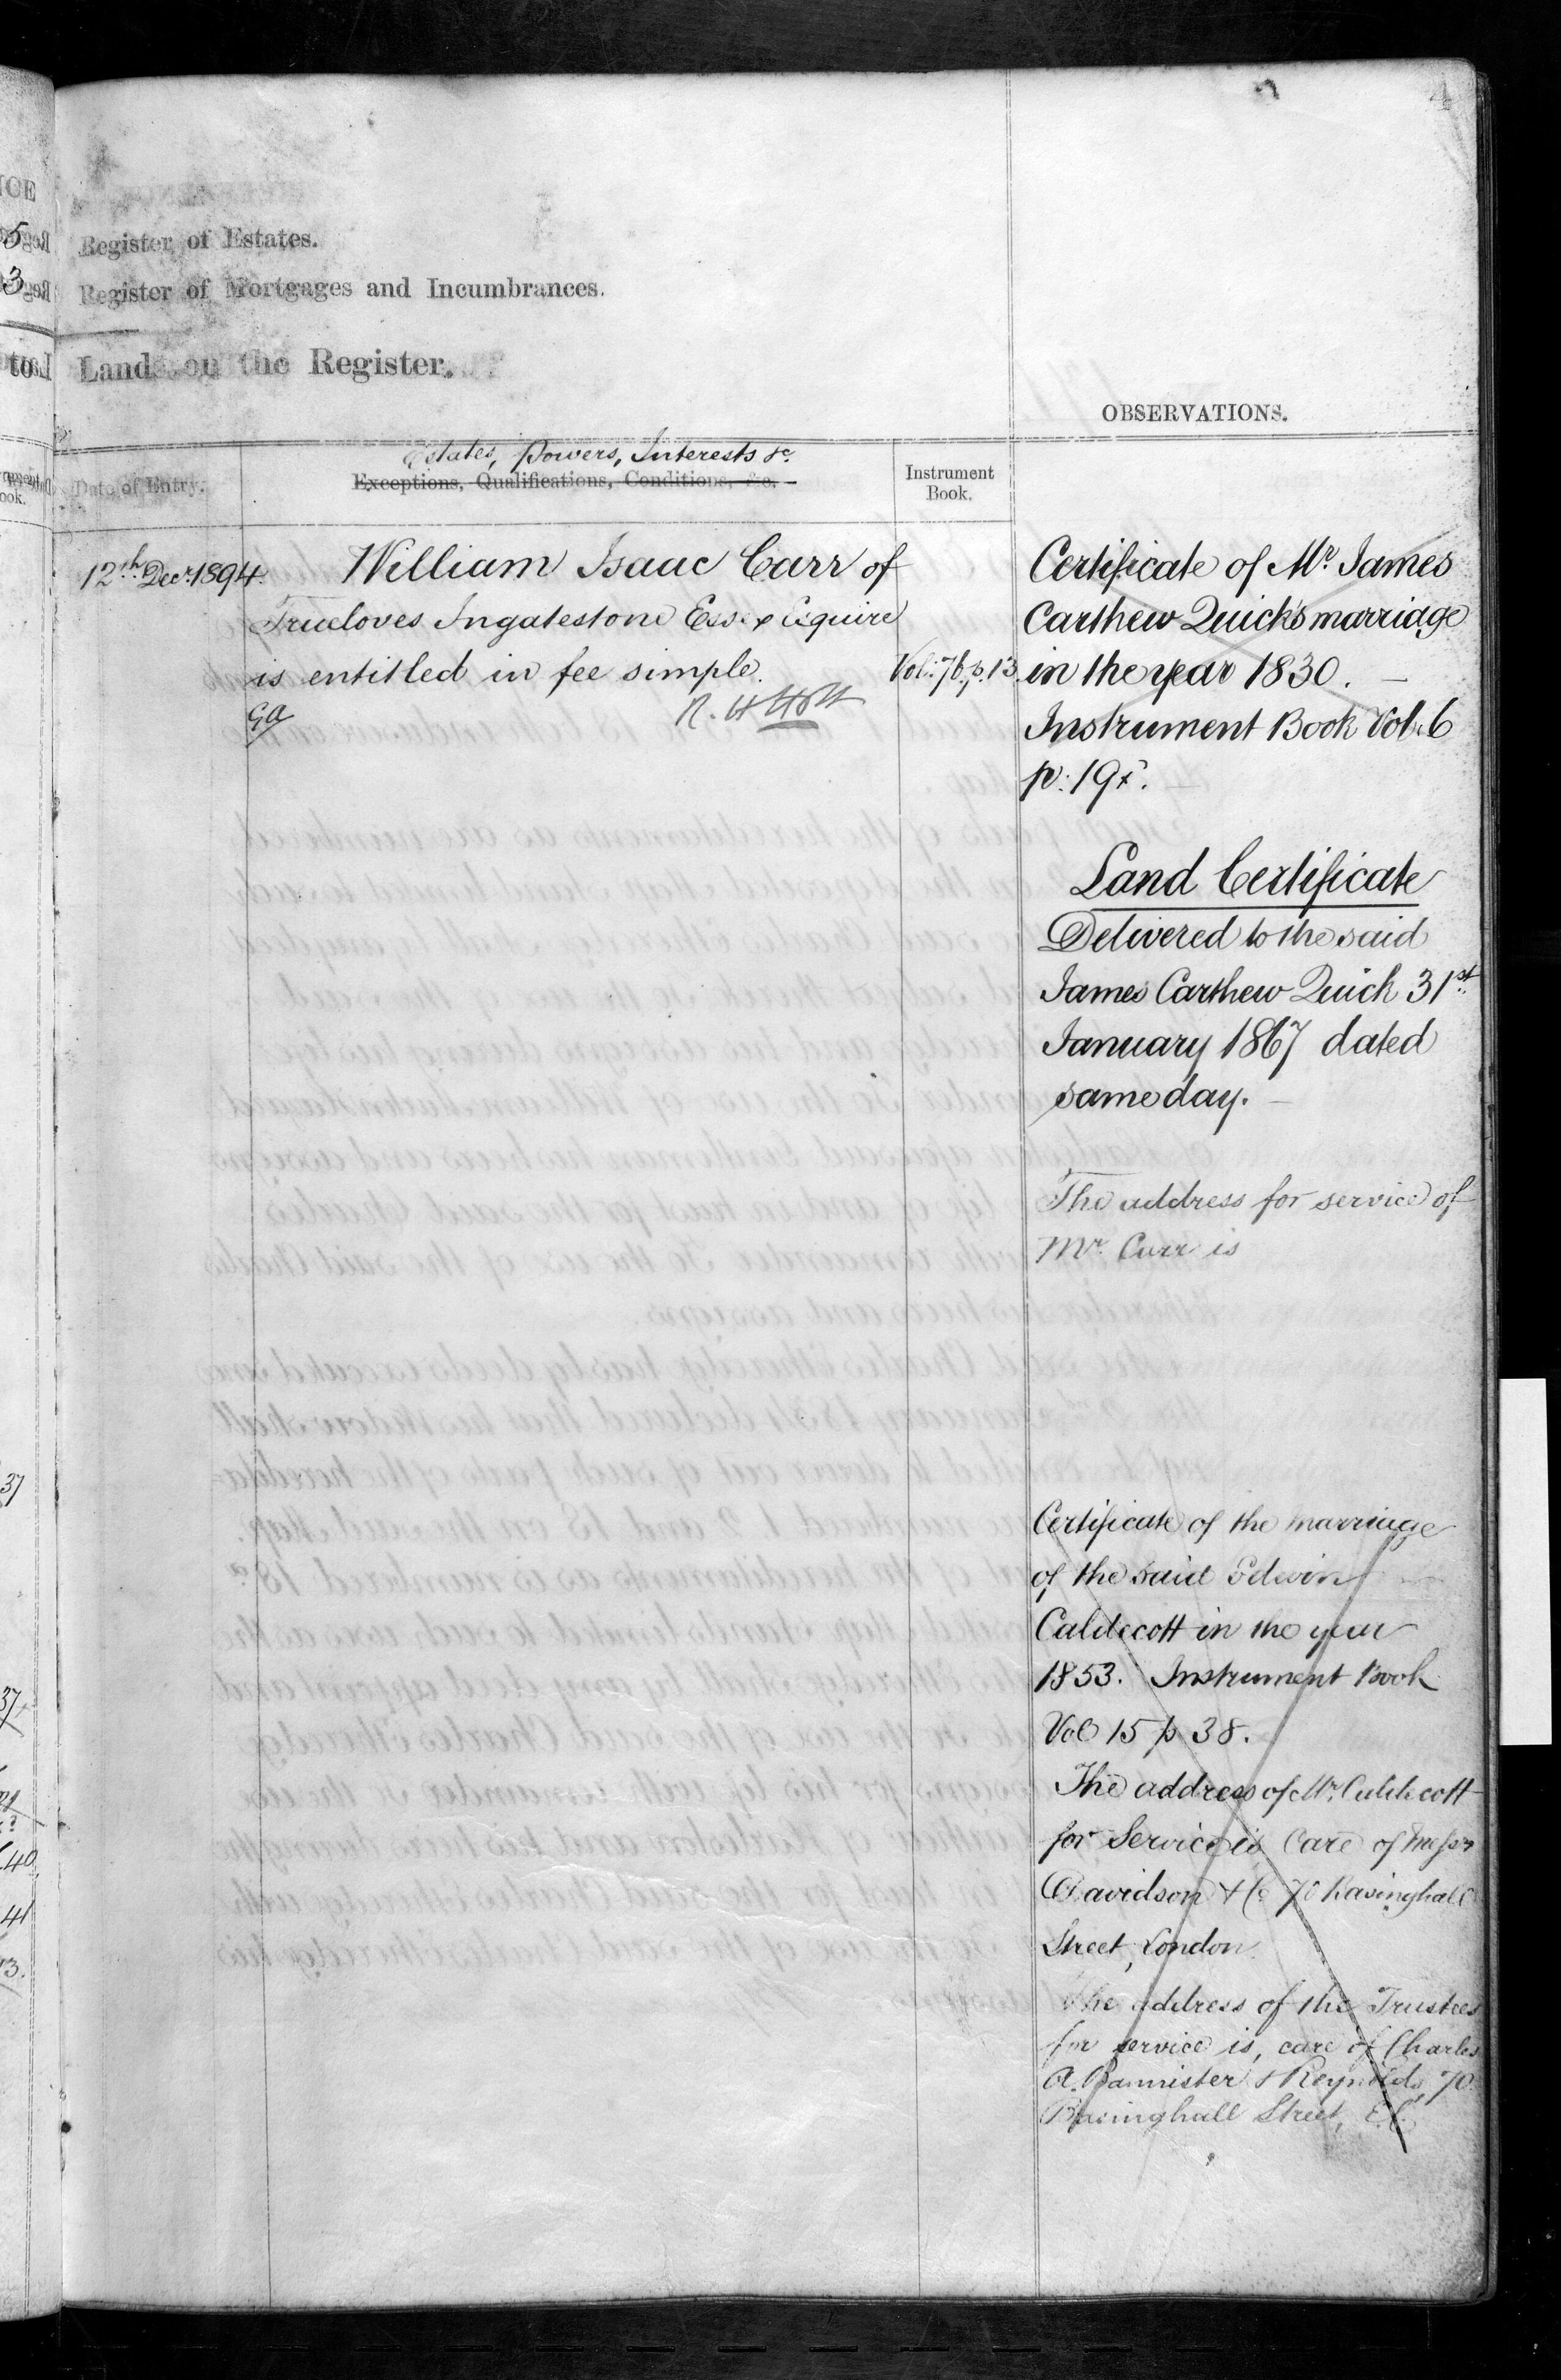 4
Register of Estates.
Register of Mortgages and Incumbrances.
Land on the Register.
OBSERVATIONS.
Date of Entry.
Estates, Powers, Interests &c.
Exceptions, Qualifications, Conditions, &c.
Instrument
Book.
12th Decr. 1894.
William Isaac Carr of
Trueloves Ingatestone Essex Esquire
is entitled in fee simple.
Vol: 76, p. 13.
Certificate of Mr. James
Carthew Quick's marriage
in the year 1830.
Instrument Book Vol. 6
Land Certificate
Delivered to the said
James Carthew Quick 31st.
January 1867 dated
same day.
The address for service of
Mr. Carr is
Certificate of the marriage
of the said Edwin
Caldecott in the year
1853. Instrument Book
Vol 15 p 38.
The address of Mr. Caldecott
for Service is Care of Messrs
Davidson & Co 70 Basinghall
Street, London.
The address of the Trustees
for service is, care of Charles
A. Bannister & Reynolds, 70
Basinghall Street, E.C.